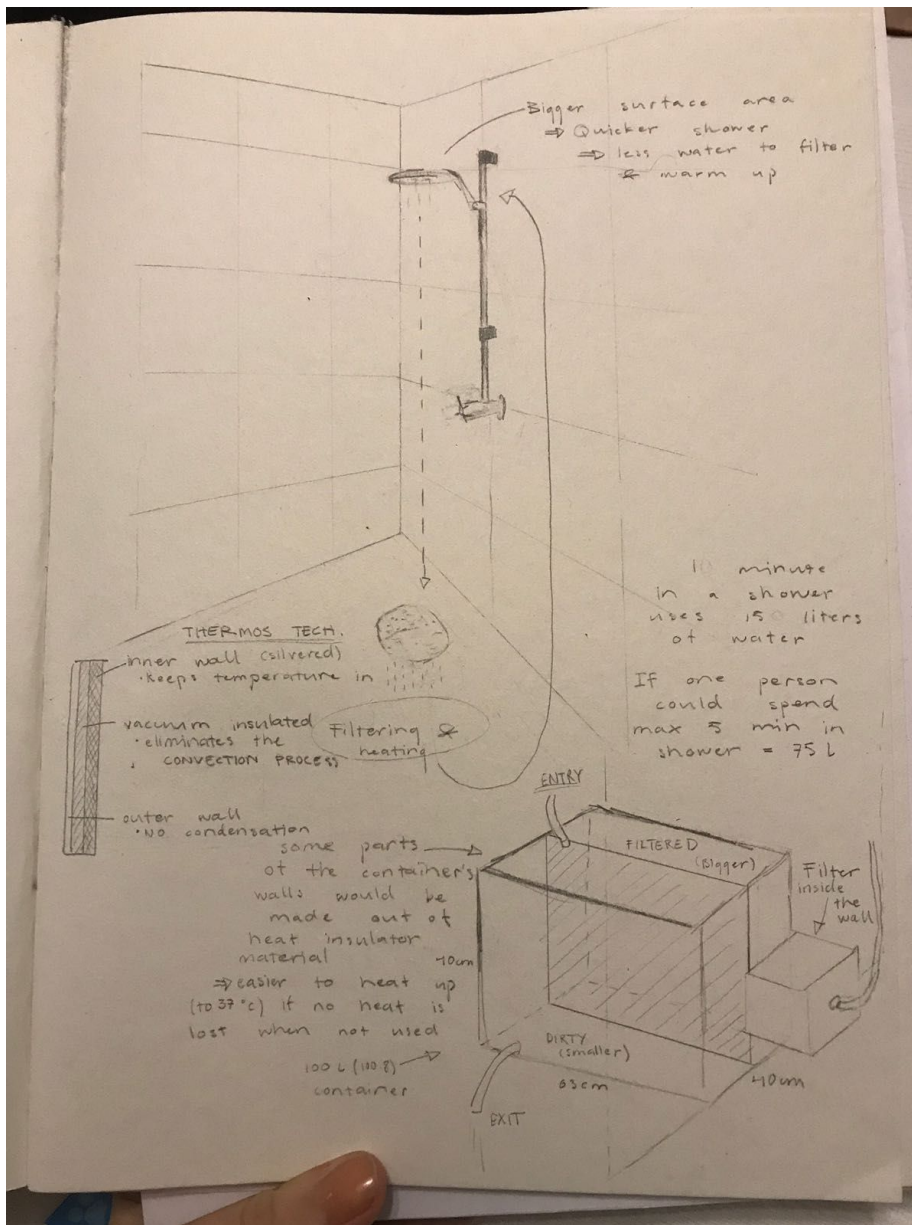 Bigger surface area
⇒ Quicker shower
⇒ less water to filter
& warm up
10 minute
in a shower
uses 150 liters
of water
If one person
could spend
max 5 min in
shower = 75 L
THERMOS TECH.
inner wall (silvered)
· Keeps temperature in
vacuum insulated
· eliminates the
CONVECTION PROCESS
outer wall
· No condensation
Filtering &
heating
some parts
of the container's
walls would be
made out of
heat insulator
material
⇒ easier to heat up
(to 37 °C) if no heat is
lost when not used
100 L (100.8)
container
ENTRY
FILTERED
(Bigger)
Filter
inside
the
wall
40cm
DIRTY
(smaller)
63cm
40cm
EXIT